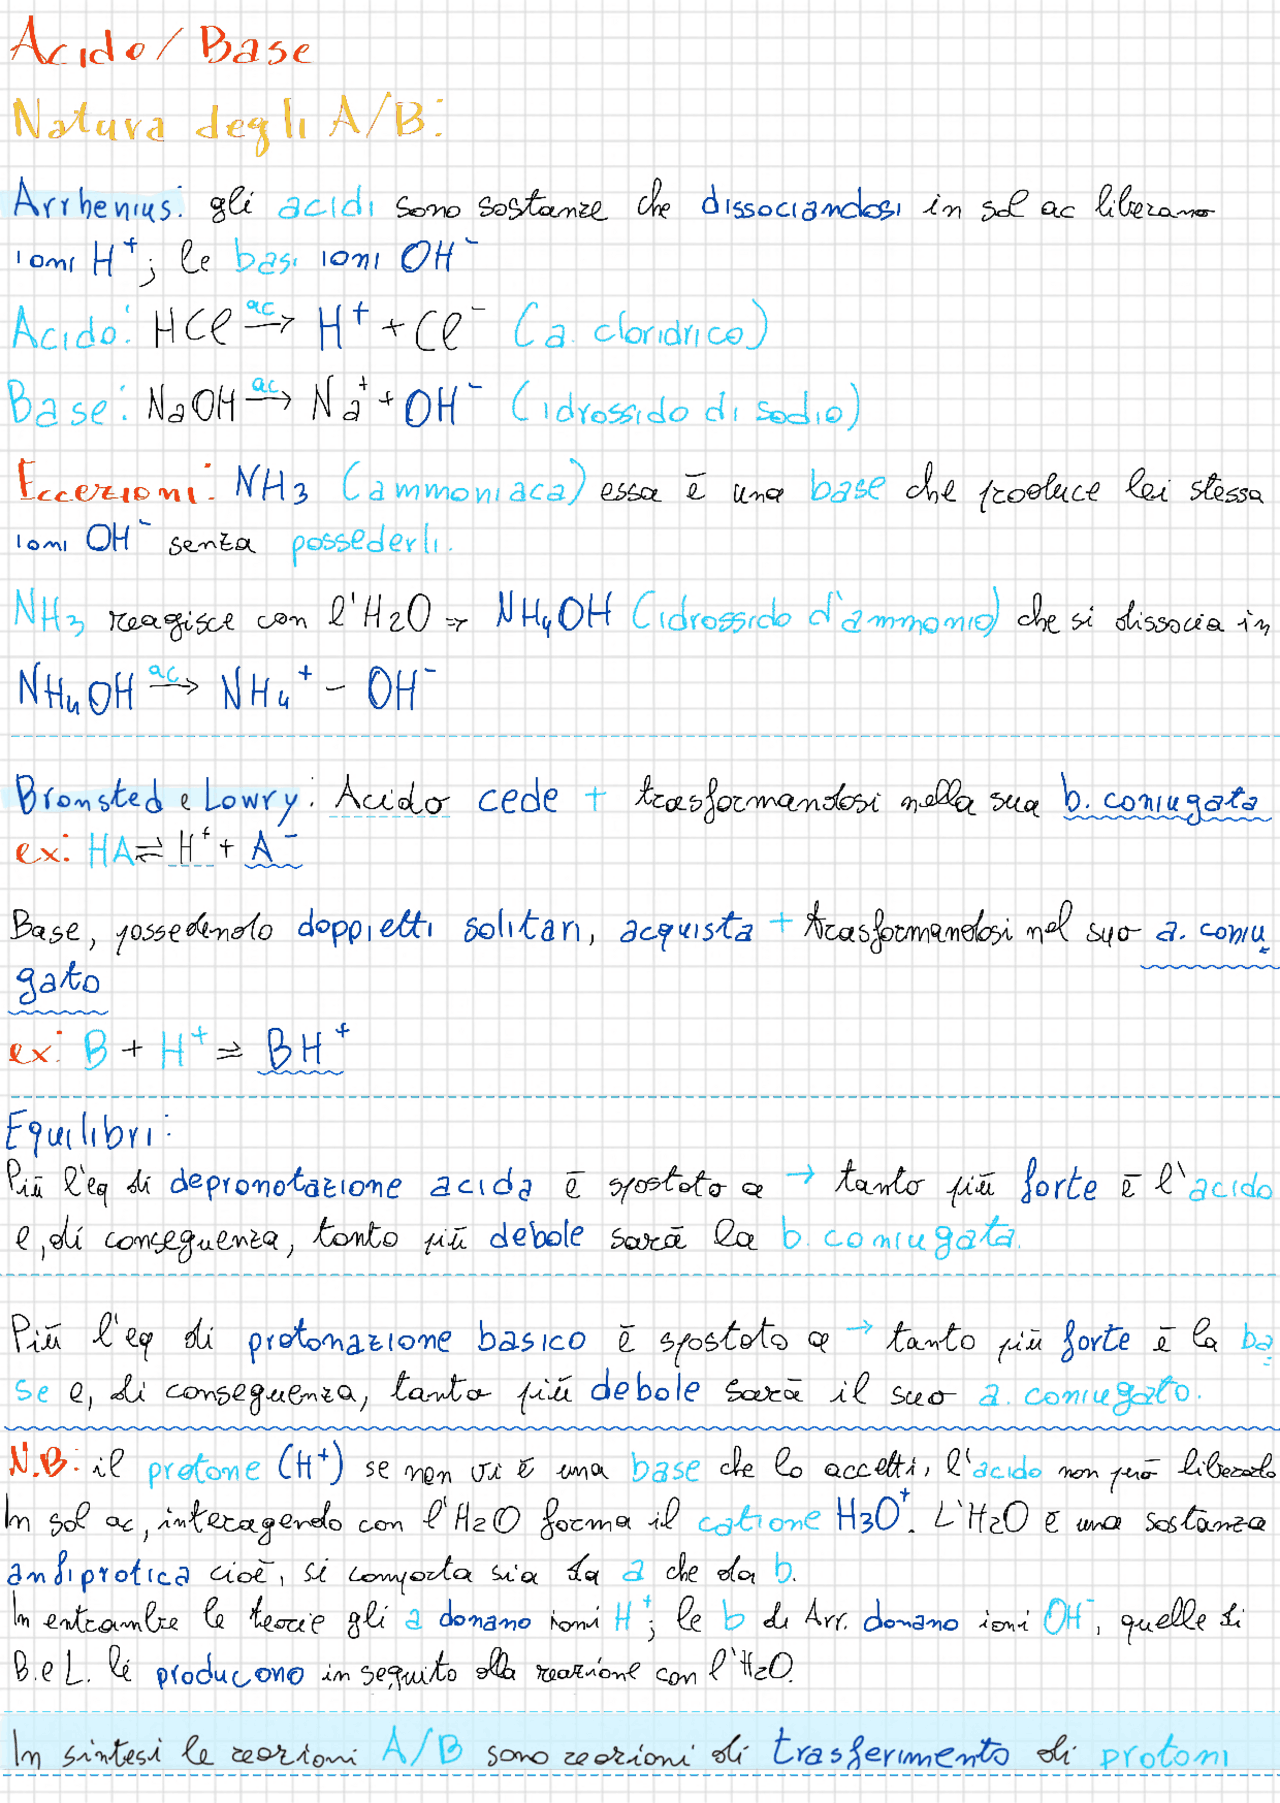 Acido/Base
Natura degli A/B:
Arrhenius: gli acidi sono sostanze che dissociandosi in sol ac liberano
ioni H⁺; le basi ioni OH⁻
Acido: HCl —ac→ H⁺ + Cl⁻ (a. cloridrico)
Base: NaOH —ac→ Na⁺ + OH⁻ (idrossido di sodio)
Eccezioni: NH3 (ammoniaca) essa è una base che produce lei stessa
ioni OH⁻ senza possederli.
NH3 reagisce con l'H2O → NH4OH (idrossido d'ammonio) che si dissocia in
NH4OH —ac→ NH4⁺ - OH⁻
Bronsted e Lowry: Acido cede + trasformandosi nella sua b. coniugata
ex: HA ⇌ H⁺ + A⁻
Base, possedendo doppietti solitari, acquista + trasformandosi nel suo a. coniu
gato
ex: B + H⁺ ⇌ BH⁺
Equilibri:
Più l'eq di depronotazione acida è spostato a → tanto più forte è l'acido
e, di conseguenza, tanto più debole sarà la b. coniugata.
Più l'eq di protonazione basico è spostato a → tanto più forte è la ba
se e, di conseguenza, tanto più debole sarà il suo a. coniugato.
N.B: il protone (H⁺) se non vi è una base che lo accetti, l'acido non può liberarlo
In sol ac, interagendo con l'H2O forma il catione H3O⁺. L'H2O è una sostanza
anfiprotica cioè, si comporta sia da a che da b.
In entrambe le teorie gli a donano ioni H⁺; le b di Arr. donano ioni OH⁻, quelle di
B. e L. li producono in seguito alla reazione con l'H2O.
In sintesi le reazioni A/B sono reazioni di trasferimento di protoni